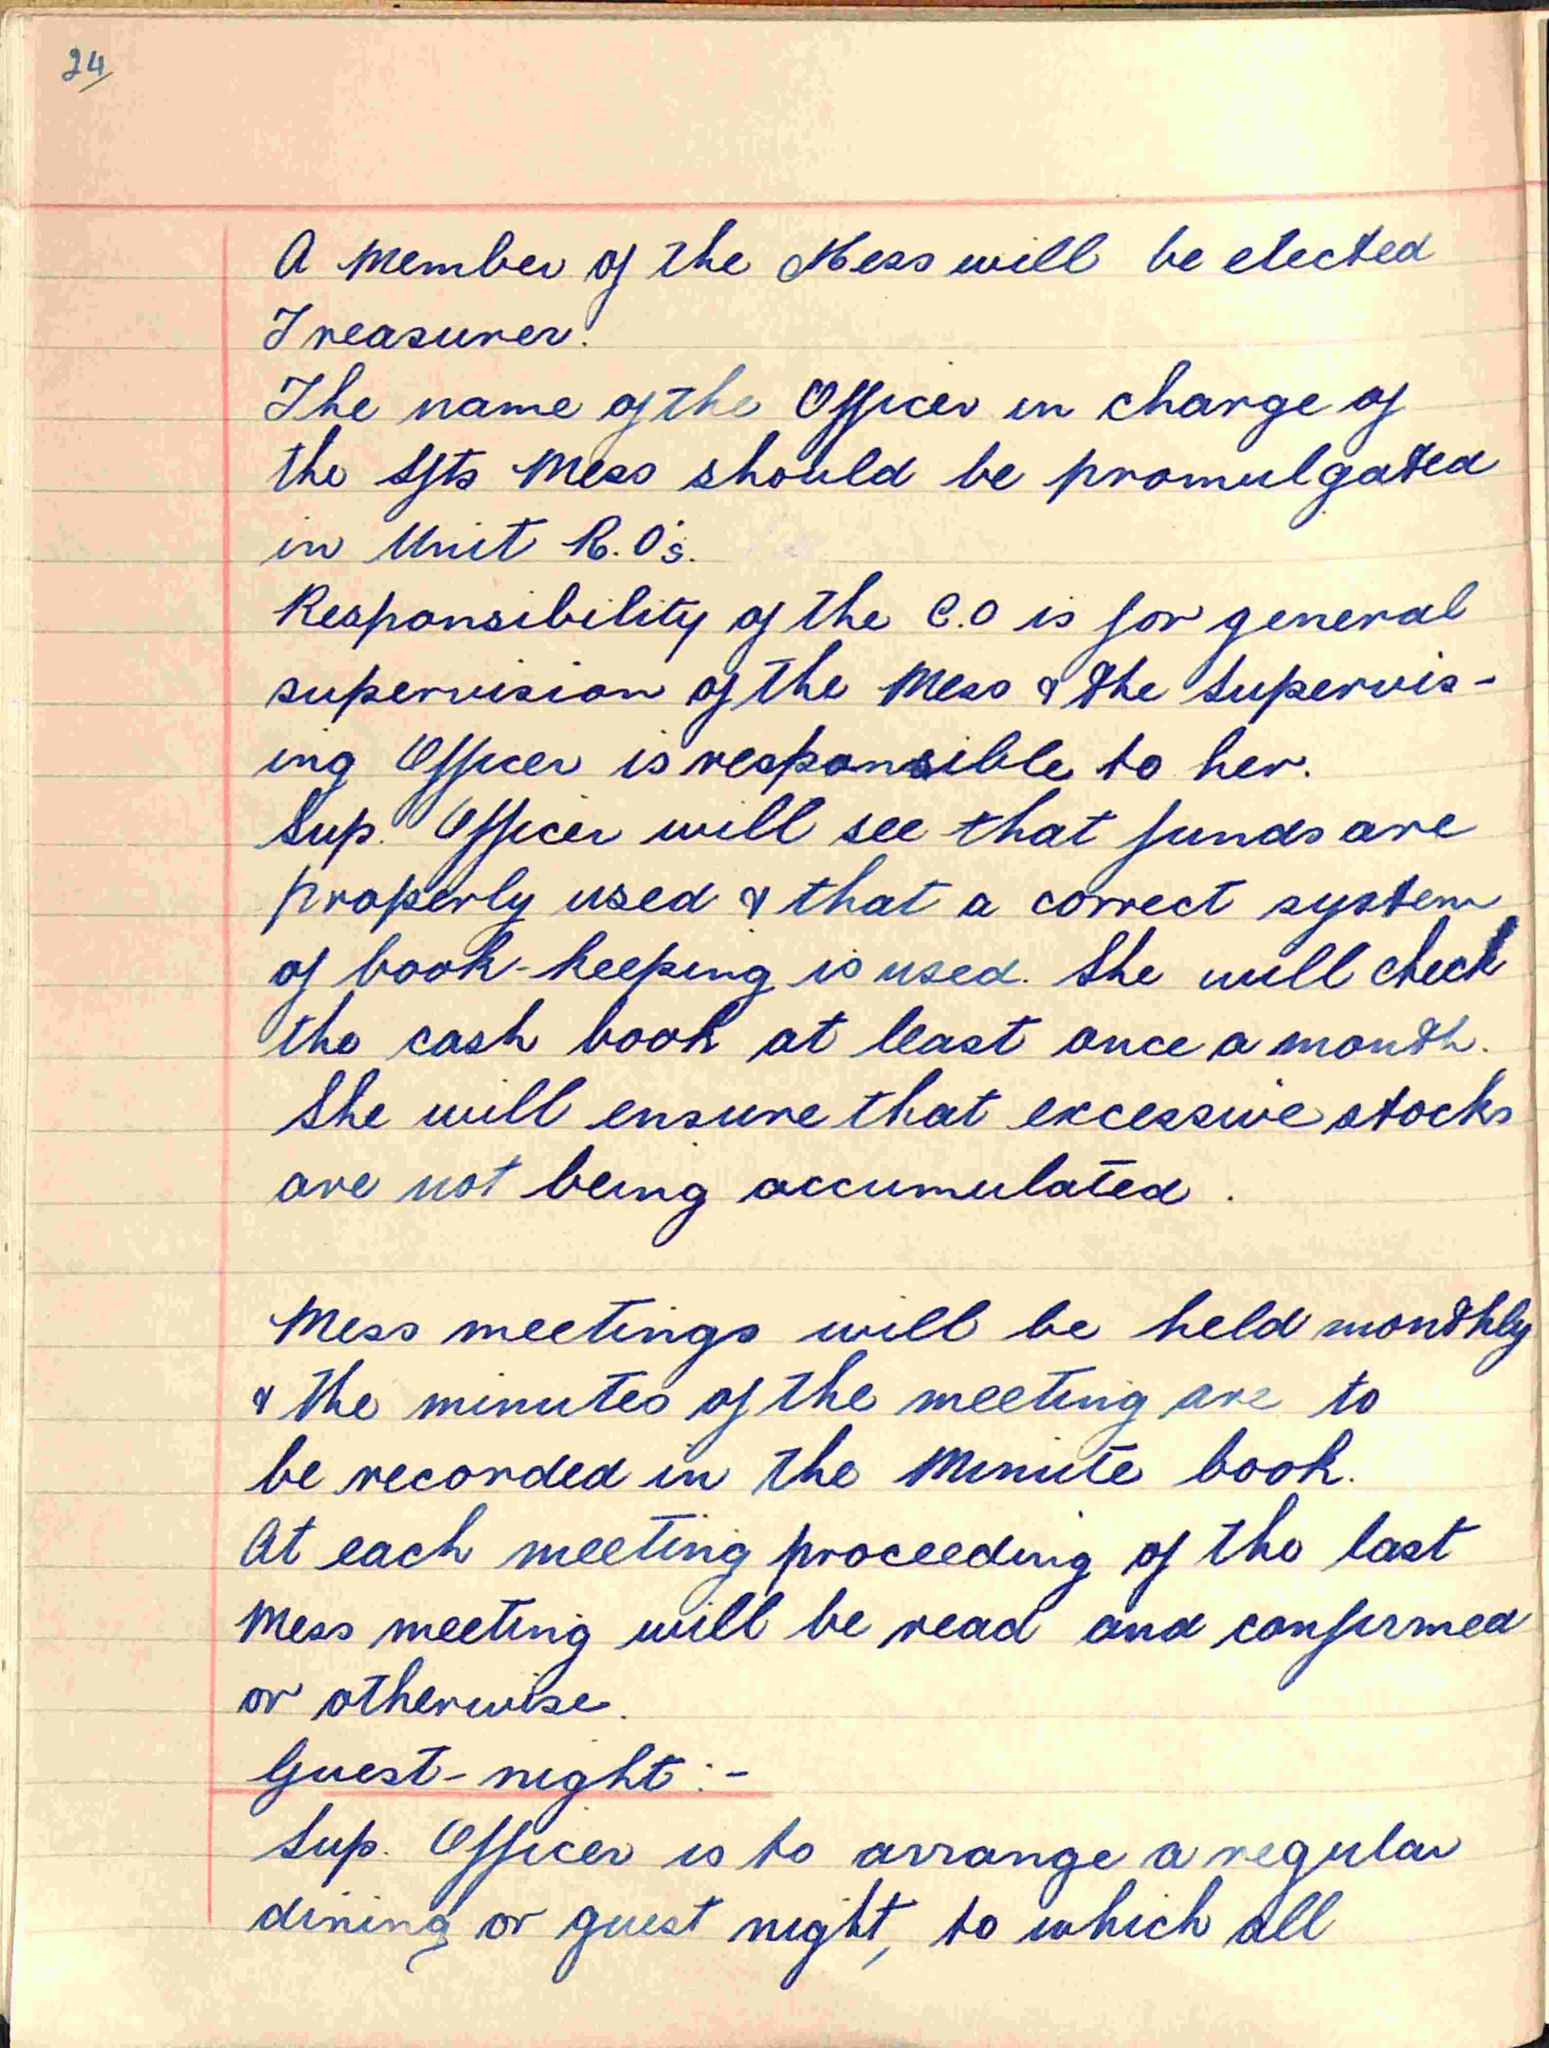 24
A Member of the Mess will be elected
Treasurer.
The name of the Officer in charge of
the Sgts Mess should be promulgated
in Unit R.O's.
Responsibility of the C.O is for general
supervision of the Mess & the Supervis-
ing Officer is responsible to her.
Sup. Officer will see that funds are
properly used & that a correct system
of book-keeping is used. She will check
the cash book at least once a month.
She will ensure that excessive stocks
are not being accumulated.
Mess meetings will be held monthly
& the minutes of the meeting are to
be recorded in the Minute book.
At each meeting proceeding of the last
Mess meeting will be read and confirmed
or otherwise.
Guest-night:-
Sup. Officer is to arrange a regular
dining or guest night, to which all